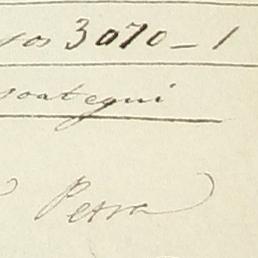 sos 3070_1
goategui
Petra